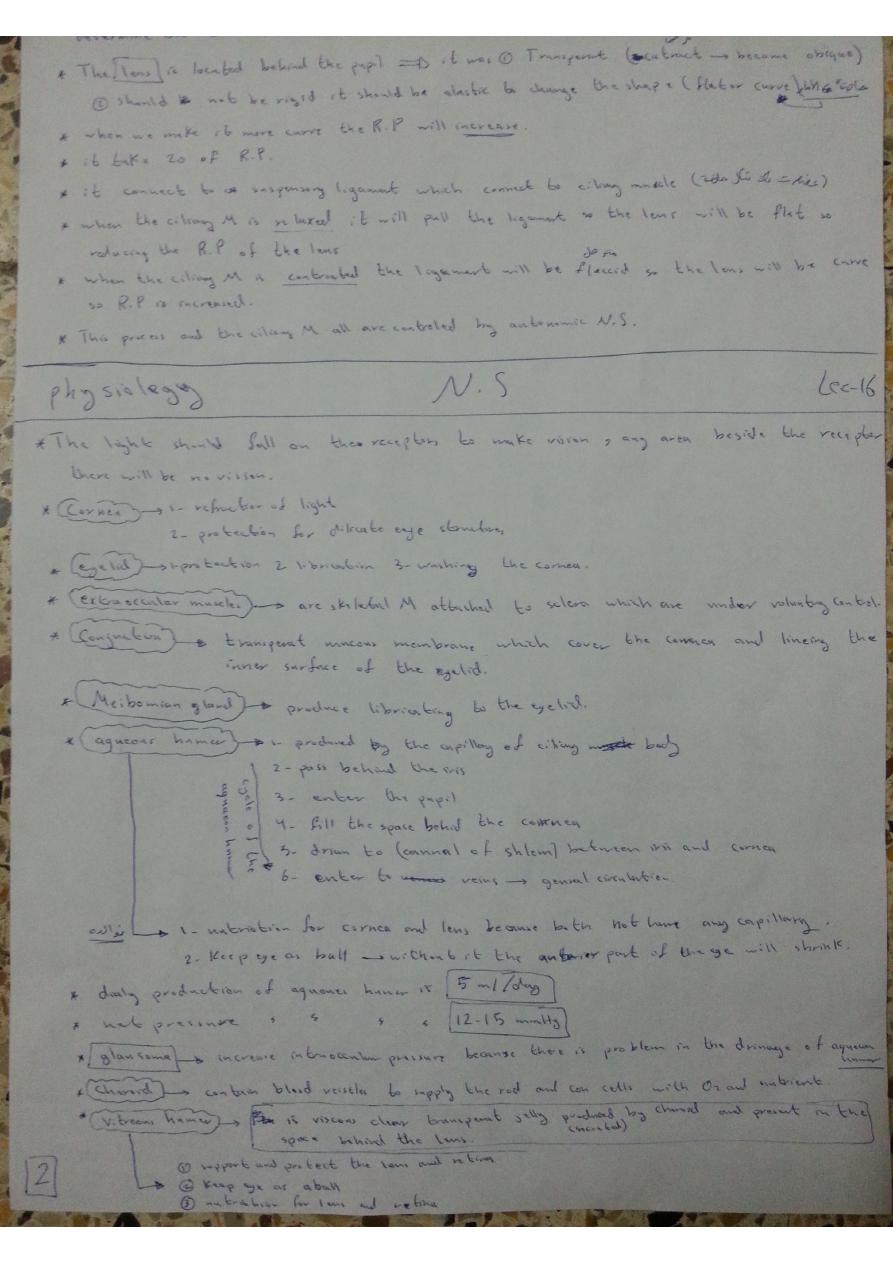 * The lens is located behind the pupil ⇒ it was ① Transparent (catract → become oblique)
② should not be rigid it should be elastic to change the shape (flat or curve)
* when we make it more curve the R.P will increase.
* it take 20 of R.P.
* it connect to suspensory ligament which connect to ciliary muscle
* when the ciliary M is relaxed it will pull the ligament so the lens will be flat so
reducing the R.P of the lens
* when the ciliary M is contracted the ligament will be flaccid so the lens will be curve
so R.P is increased.
* This process and the ciliary M all are controled by autonomic N.S.
physiology N.S Lec-16
* The light should fall on the receptors to make vision, any area beside the receptor
there will be no vission.
* Cornea → 1- refraction of light
2- protection for dilicate eye structures
* eyelid → 1-protection 2 librication 3- washing the cornea.
* extraoccular muscles → are skiletal M attached to sclera which are under voluntry control.
* Conjnctiva → transperat mucous membrane which cover the cornea and lineing the
inner surface of the eyelid.
* Meibomian gland → produce libricating to the eyelid.
* aqueous humer → 1- produced by the capillary of ciliary body
cycle of the aquaeon humer
2- pass behind the iris
3- enter the pupil
4- fill the space behid the cornea
5- drian to (cannal of shlem) between iris and cornea
6- enter to veins → genral circulation
فوائده
1- nutrition for cornea and lens because both not have any capillary.
2- Keep eye as ball → without it the anterior part of the eye will shrink.
* daily production of aqueous humer is 5 ml/day
* net pressure " " " " 12-15 mmHg
* glaucoma → increase intraoccular pressure because there is problem in the drinage of aqueous humer
* choroid → contain blood vessles to supply the rod and con cells with O2 and nutrient.
* vitreous humer → is viscous clear transperat jelly produced by choroid and present in the
(secreted)
space behind the lens.
① support and protect the lens and retina
② Keep eye as aball
③ nutrition for lens and retina
2